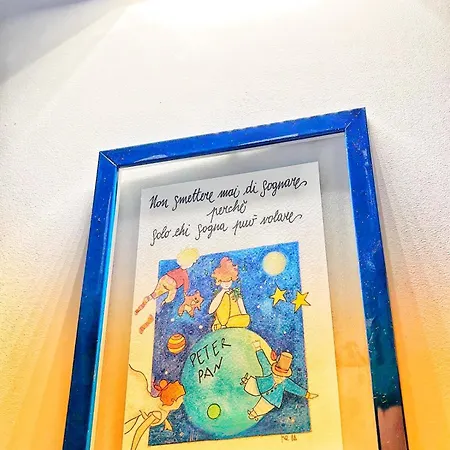 Non smettere mai di sognare,
perchè
solo chi sogna può volare
PETER
PAN